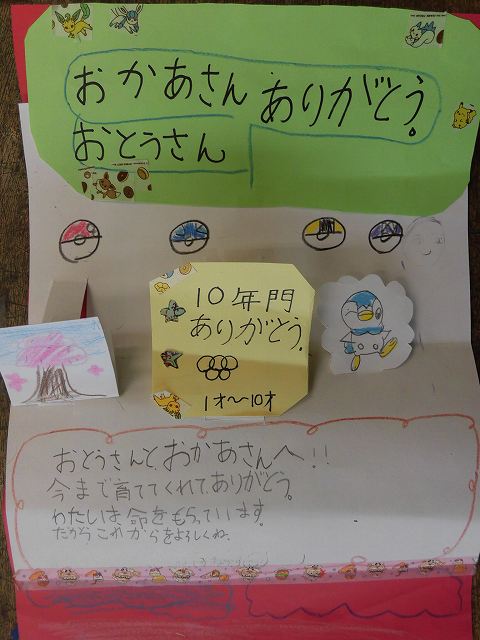 おかあさん ありがとう。
おとうさん
10年門
ありがとう。
1才〜10才
おとうさんとおかあさんへ!!
今まで育ててくれてありがとう。
わたしは、命をもらっています。
だから、これからをよろしくね。